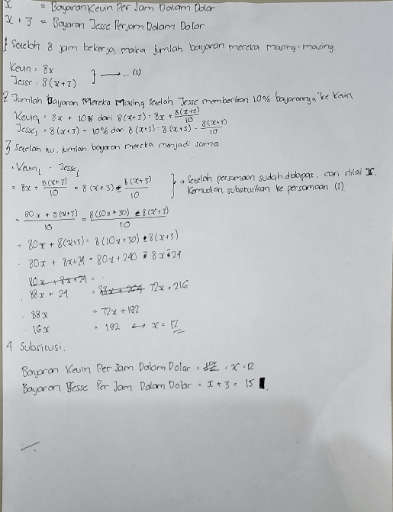 x = Bayaran Kevin Per Jam Dalam Dolar
x + 3 = Bayaran Jesse Perjam Dalam Dolar
1 Setelah 8 jam bekerja, maka jumlah bayaran mereka masing-masing
Kevin = 8x
Jesse = 8(x+3) } → ... (1)
2 Jumlah Bayaran Mereka Masing Setelah Jesse memberikan 10% bayarannya ke Kevin
Kevin1 = 8x + 10% dari 8(x+3) = 8x + 8(x+3)/10
Jesse1 = 8(x+3) - 10% dari 8(x+3) = 8(x+3) - 8(x+3)/10
3 Setelah itu, jumlah bayaran mereka menjadi sama
Kevin1 = Jesse1
= 8x + 8(x+3)/10 = 8(x+3) - 8(x+3)/10 } → Setelah persamaan sudah didapat, cari nilai x.
Kemudian substitusikan ke persamaan (1)
= 80x + 8(x+3)/10 = 8(10x+30) - 8(x+3)/10
= 80x + 8(x+3) = 8(10x+30) - 8(x+3)
= 80x + 8x+24 = 80x + 240 - 8x-24
88x + 24 = 72x + 216
88x = 72x + 192
16x = 192 ↔ x = 12
4 Subtitusi.
Bayaran Kevin Per Jam Dalam Dolar = x = 12
Bayaran Jesse Per Jam Dalam Dolar = x + 3 = 15